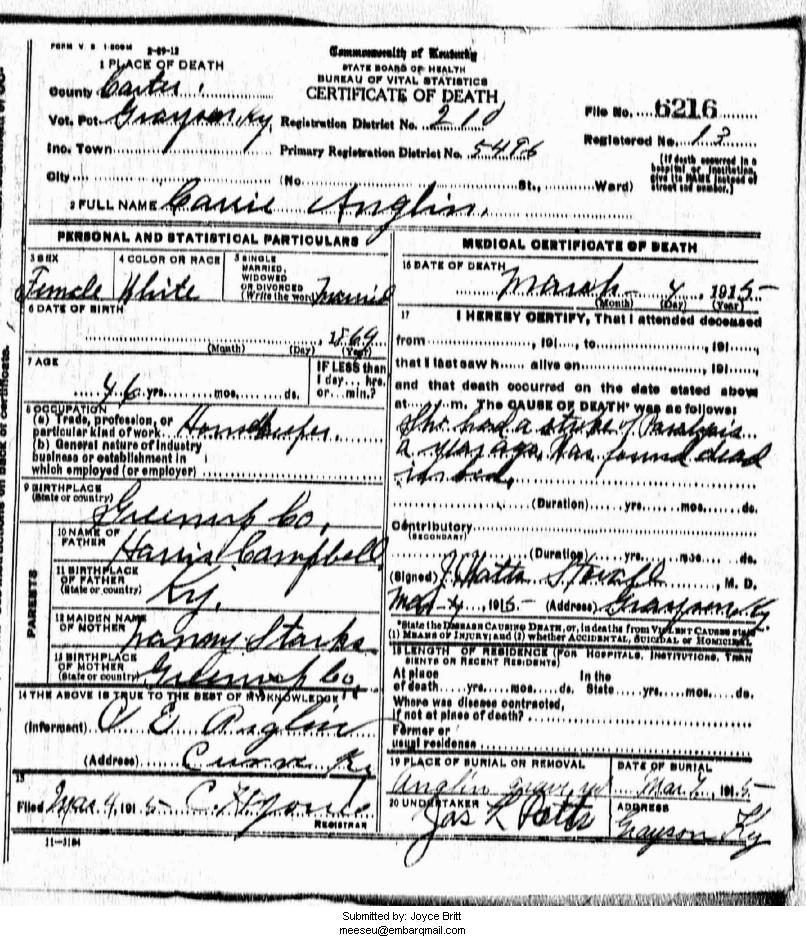 FORM V. S. 1-50M 2-29-12
Commonwealth of Kentucky
STATE BOARD OF HEALTH
BUREAU OF VITAL STATISTICS
CERTIFICATE OF DEATH
1 PLACE OF DEATH
County Carter.
Vot. Pct. Grayson Ky. Registration District No. 210
File No. 6216
Inc. Town Primary Registration District No. 5496
Registered No. 13
City (No. St., Ward)
[If death occurred in a hospital or institution, give its NAME instead of street and number.]
2 FULL NAME Carrie Anglin.
PERSONAL AND STATISTICAL PARTICULARS
3 SEX Female
4 COLOR OR RACE White
5 SINGLE, MARRIED, WIDOWED OR DIVORCED (Write the word) Married
6 DATE OF BIRTH
1869
(Month) (Day) (Year)
7 AGE
46 yrs. mos. ds.
IF LESS than 1 day... hrs. or... min.?
8 OCCUPATION
(a) Trade, profession, or particular kind of work Housekeeper.
(b) General nature of industry
business or establishment in
which employed (or employer)
9 BIRTHPLACE
(State or country) Greenup Co,
PARENTS
10 NAME OF FATHER Harris Campbell
11 BIRTHPLACE OF FATHER (State or country) Ky.
12 MAIDEN NAME OF MOTHER Nanny Starks
13 BIRTHPLACE OF MOTHER (State or country) Greenup Co,
14 THE ABOVE IS TRUE TO THE BEST OF MY KNOWLEDGE
(Informent) E Anglin
(Address) Ky
15
Filed Mar 4, 1915
REGISTRAR
11-3184
MEDICAL CERTIFICATE OF DEATH
16 DATE OF DEATH
March 4, 1915
(Month) (Day) (Year)
17 I HEREBY CERTIFY, That I attended deceased
from , 191 , to , 191 ,
that I last saw h alive on , 191 ,
and that death occurred on the date stated above
at m. The CAUSE OF DEATH* was as follows:
She had a stroke of Paralysis
a year ago, was found dead
in bed,
(Duration) yrs. mos. ds.
Contributory
(SECONDARY)
(Duration) yrs. mos. ds.
(Signed) J Watts Stovall, M. D.
Mar 4, 1915 (Address) Grayson Ky
*State the DISEASE CAUSING DEATH, or, in deaths from VIOLENT CAUSES state
(1) MEANS OF INJURY; and (2) whether ACCIDENTAL, SUICIDAL or HOMICIDAL.
18 LENGTH OF RESIDENCE (FOR HOSPITALS, INSTITUTIONS, TRANSIENTS OR RECENT RESIDENTS)
At place In the
of death yrs. mos. ds. State yrs. mos. ds.
Where was disease contracted,
if not at place of death?
Former or
usual residence
19 PLACE OF BURIAL OR REMOVAL
Anglin grave yd
DATE OF BURIAL
Mar , 1915
20 UNDERTAKER
Jas L Potts
ADDRESS
Grayson Ky
Submitted by: Joyce Britt
meeseu@embarqmail.com